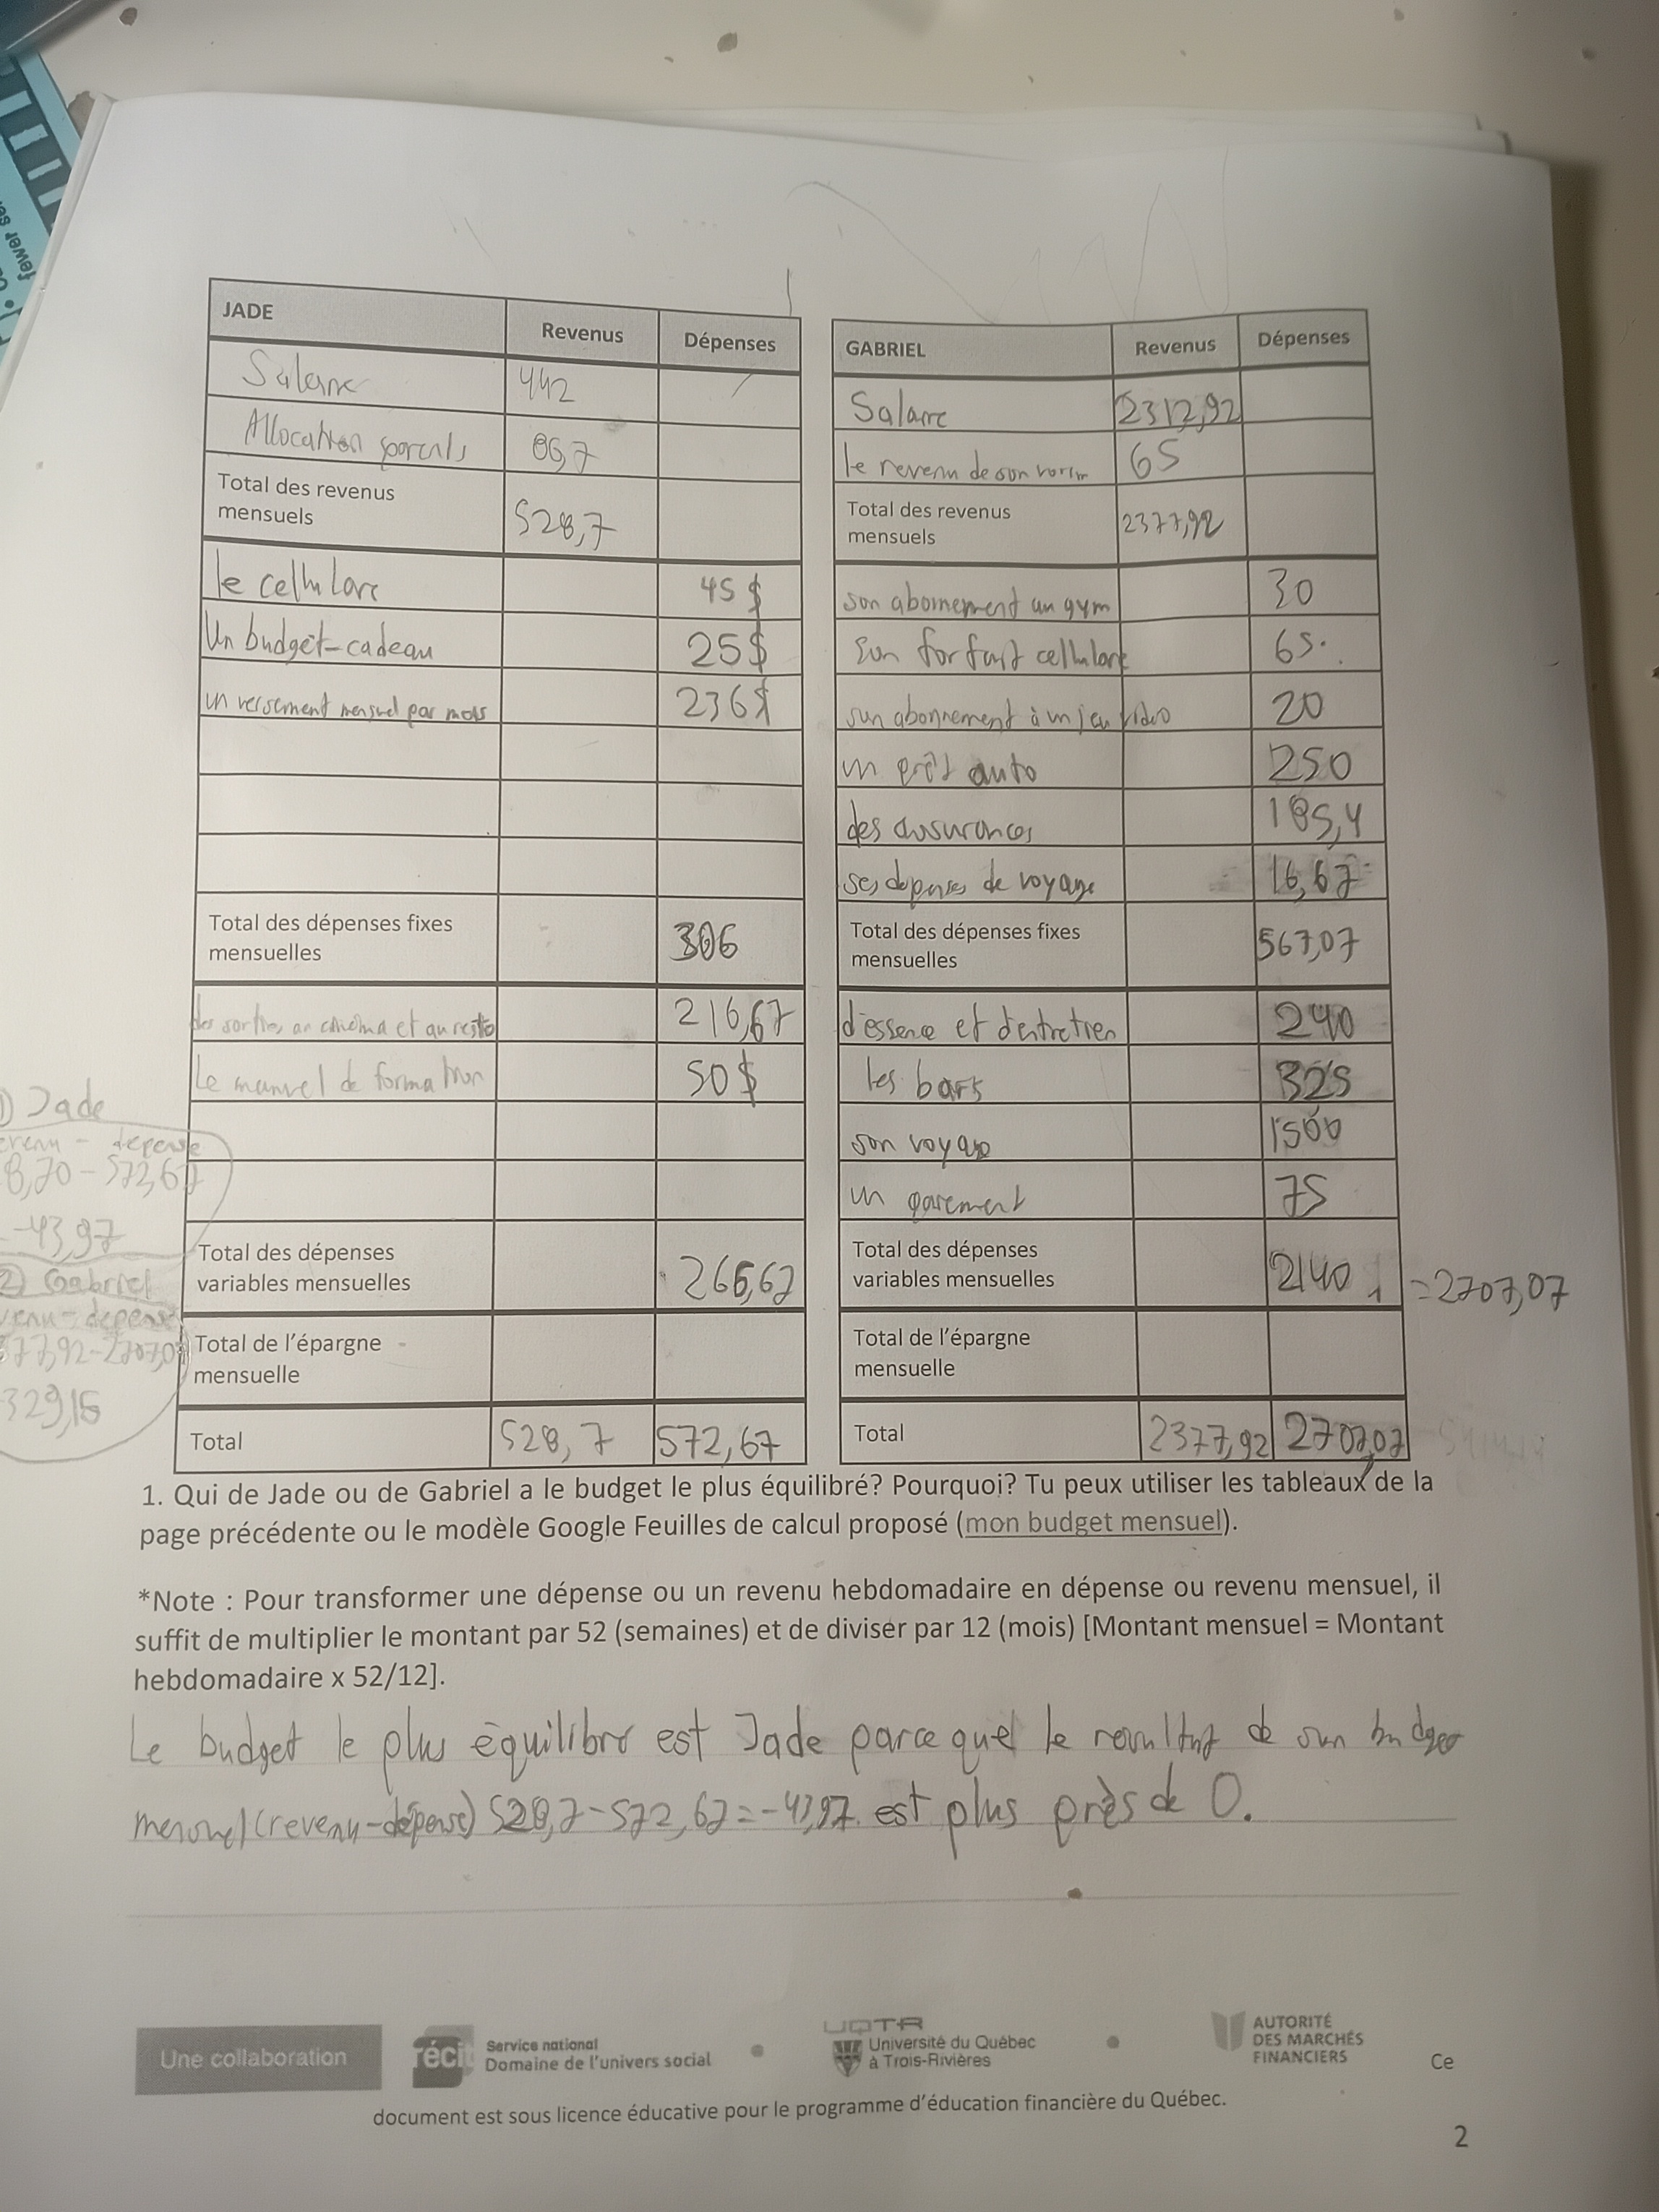 fewer se
JADE Revenus Dépenses
Salaire 442
Allocation parents 86,7
Total des revenus mensuels 528,7
le cellulare 45 $
Un budget-cadeau 25$
un versement mensuel par mois 236$
Total des dépenses fixes mensuelles 306
des sorties au cinéma et au resto 216,67
Le manuel de formation 50$
Total des dépenses variables mensuelles 266,67
Total de l'épargne mensuelle
Total 528,7 572,67
GABRIEL Revenus Dépenses
Salaire 2312,92
le revenu de son voisin 65
Total des revenus mensuels 2377,92
son abonnement au gym 30
Son forfait cellulare 65.
son abonnement à un jeu vidéo 20
un prêt auto 250
des assurances 185,4
ses dépenses de voyage 16,67
Total des dépenses fixes mensuelles 567,07
d'essence et d'entretien 240
les bars 325
son voyage 1500
un 75
Total des dépenses variables mensuelles 2140 =2707,07
Total de l'épargne mensuelle
Total 2377,92 2707,07
1) Jade
revenu - dépense
8,70 - 572,67
-43,97
2) Gabriel
venu - dépense
377,92-2707,07
329,15
1. Qui de Jade ou de Gabriel a le budget le plus équilibré? Pourquoi? Tu peux utiliser les tableaux de la
page précédente ou le modèle Google Feuilles de calcul proposé (mon budget mensuel).
*Note : Pour transformer une dépense ou un revenu hebdomadaire en dépense ou revenu mensuel, il
suffit de multiplier le montant par 52 (semaines) et de diviser par 12 (mois) [Montant mensuel = Montant
hebdomadaire x 52/12].
Le budget le plus équilibré est Jade parce que le résultat de son budget
mensuel (revenu-dépense) 528,7-572,67=-43,97. est plus près de 0.
Une collaboration
récit
Service national
Domaine de l'univers social
UQTR
Université du Québec
à Trois-Rivières
AUTORITÉ
DES MARCHÉS
FINANCIERS
Ce
document est sous licence éducative pour le programme d'éducation financière du Québec.
2